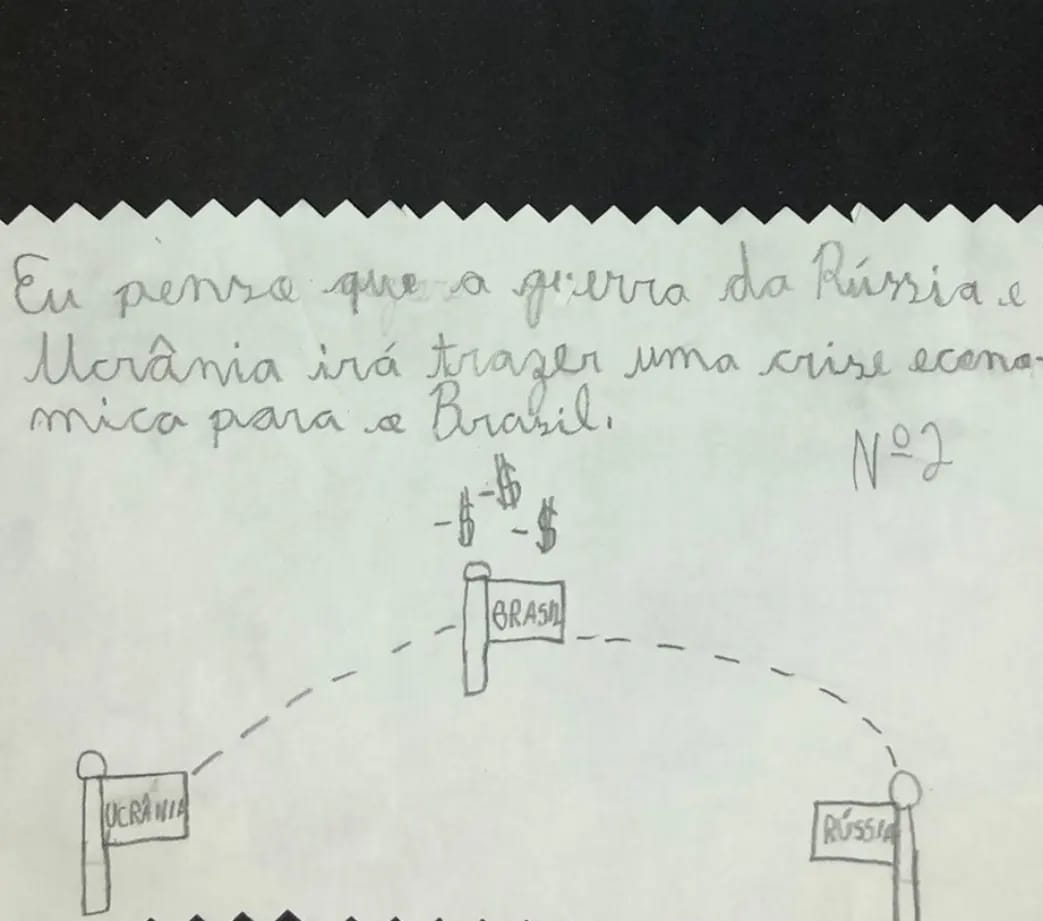 Eu penso que a guerra da Rússia e
Ucrânia irá trazer uma crise econo-
mica para o Brasil.
Nº2
-$ -$ -$
BRASIL
UCRÂNIA
RÚSSIA